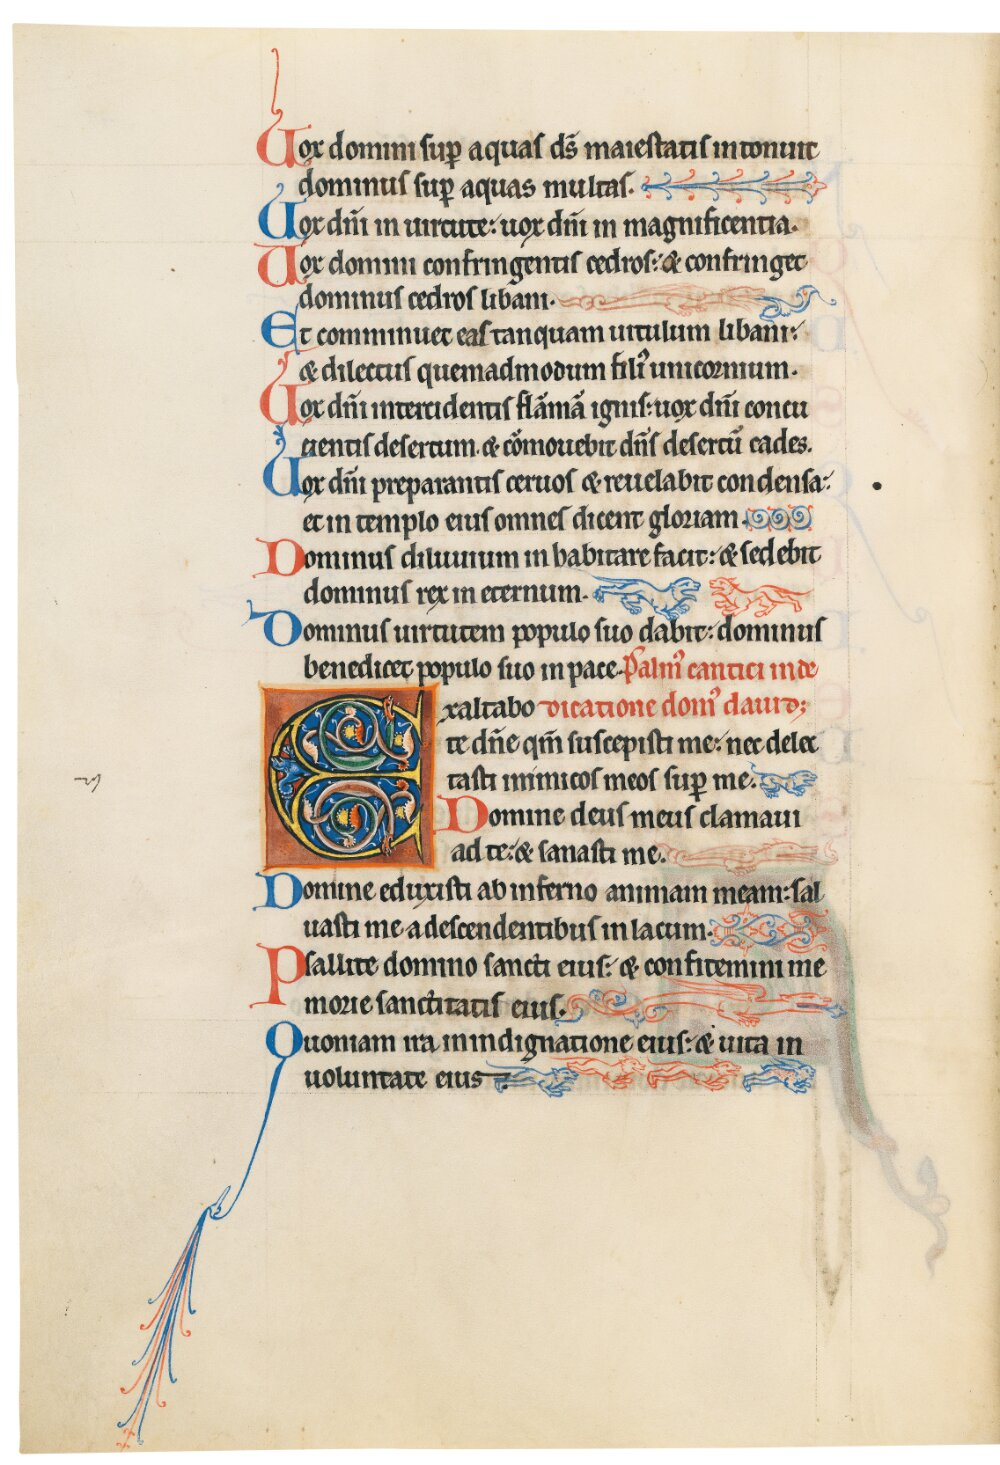 Uox domini sup̱ aquas ds̄ maiestatis intonuit
dominus sup̱ aquas multas.
Uox dn̄i in uirtute: uox dn̄i in magnificentia.
Uox domini confringentis cedros: & confringet
dominus cedros libani.
Et comminuet eas tanquam uitulum libani:
& dilectus quemadmodum filiꝰ unicornium.
Uox dn̄i intercidentis flāmā ignis: uox dn̄i concu
tientis desertum. & cōmouebit dn̄s desertū cades.
Uox dn̄i preparantis ceruos & reuelabit condensa:
et in templo eius omnes dicent gloriam.
Dominus diluuium inhabitare facit: & sedebit
dominus rex in eternum.
Dominus uirtutem populo suo dabit: dominus
benedicet populo suo in pace. Psalmꝰ cantici inde
Exaltabo dicatione domꝰ dauid;
te dn̄e qm̄ suscepisti me: nec delec
tasti inimicos meos sup̱ me.
Domine deus meus clamaui
ad te: & sanasti me.
Domine eduxisti ab inferno animam meam: sal
uasti me a descendentibus in lacum.
Psallite domino sancti eius: & confitemini me
morie sanctitatis eius.
Quoniam ira in indignatione eius: & uita in
uoluntate eius